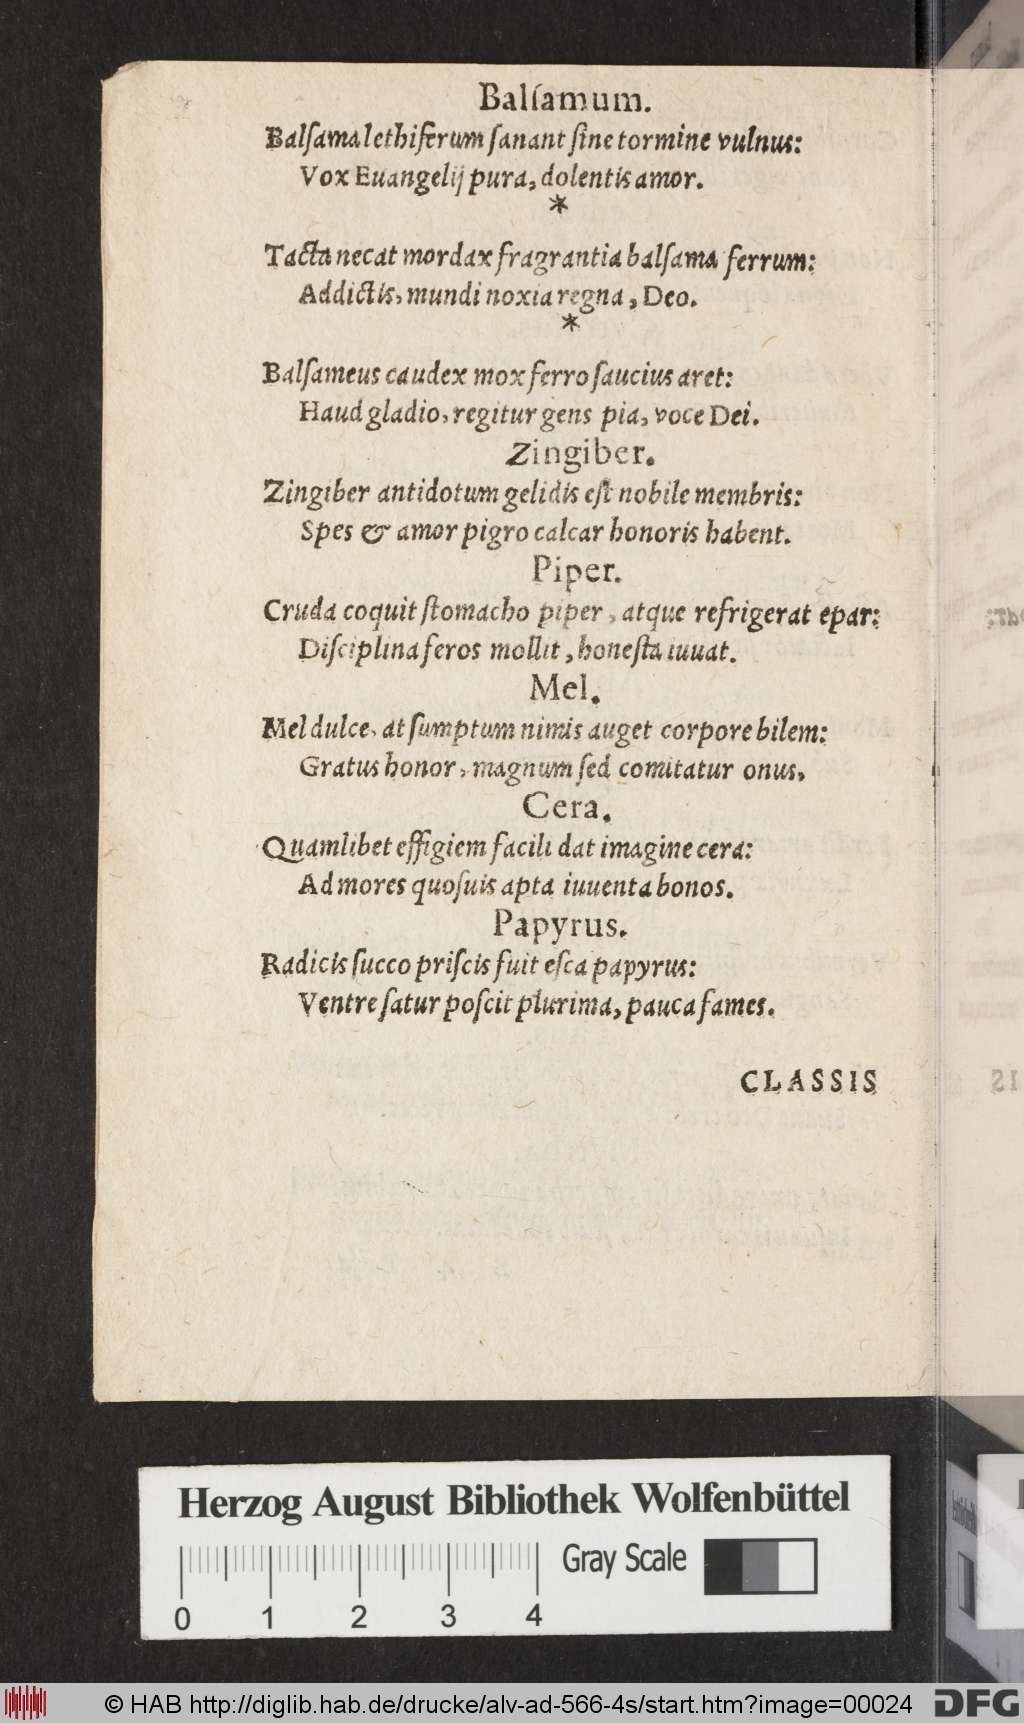 Balſamum.
Balſama lethiferum ſanant ſine tormine vulnus:
Vox Euangelij pura, dolentis amor.
*
Tacta necat mordax fragrantia balſama ferrum:
Addictis, mundi noxia regna, Deo.
*
Balſameus caudex mox ferro ſaucius aret:
Haud gladio, regitur gens pia, voce Dei.
Zingiber.
Zingiber antidotum gelidis eſt nobile membris:
Spes & amor pigro calcar honoris habent.
Piper.
Cruda coquit ſtomacho piper, atque refrigerat epar:
Diſciplina feros mollit, honeſta iuuat.
Mel.
Mel dulce, at ſumptum nimis auget corpore bilem:
Gratus honor, magnum ſed comitatur onus,
Cera.
Quamlibet effigiem facili dat imagine cera:
Ad mores quoſuis apta iuuenta bonos.
Papyrus.
Radicis ſucco priſcis fuit eſca papyrus:
Ventre ſatur poſcit plurima, pauca fames.
CLASSIS
Herzog August Bibliothek Wolfenbüttel
Gray Scale
0 1 2 3 4
© HAB http://diglib.hab.de/drucke/alv-ad-566-4s/start.htm?image=00024
DFG